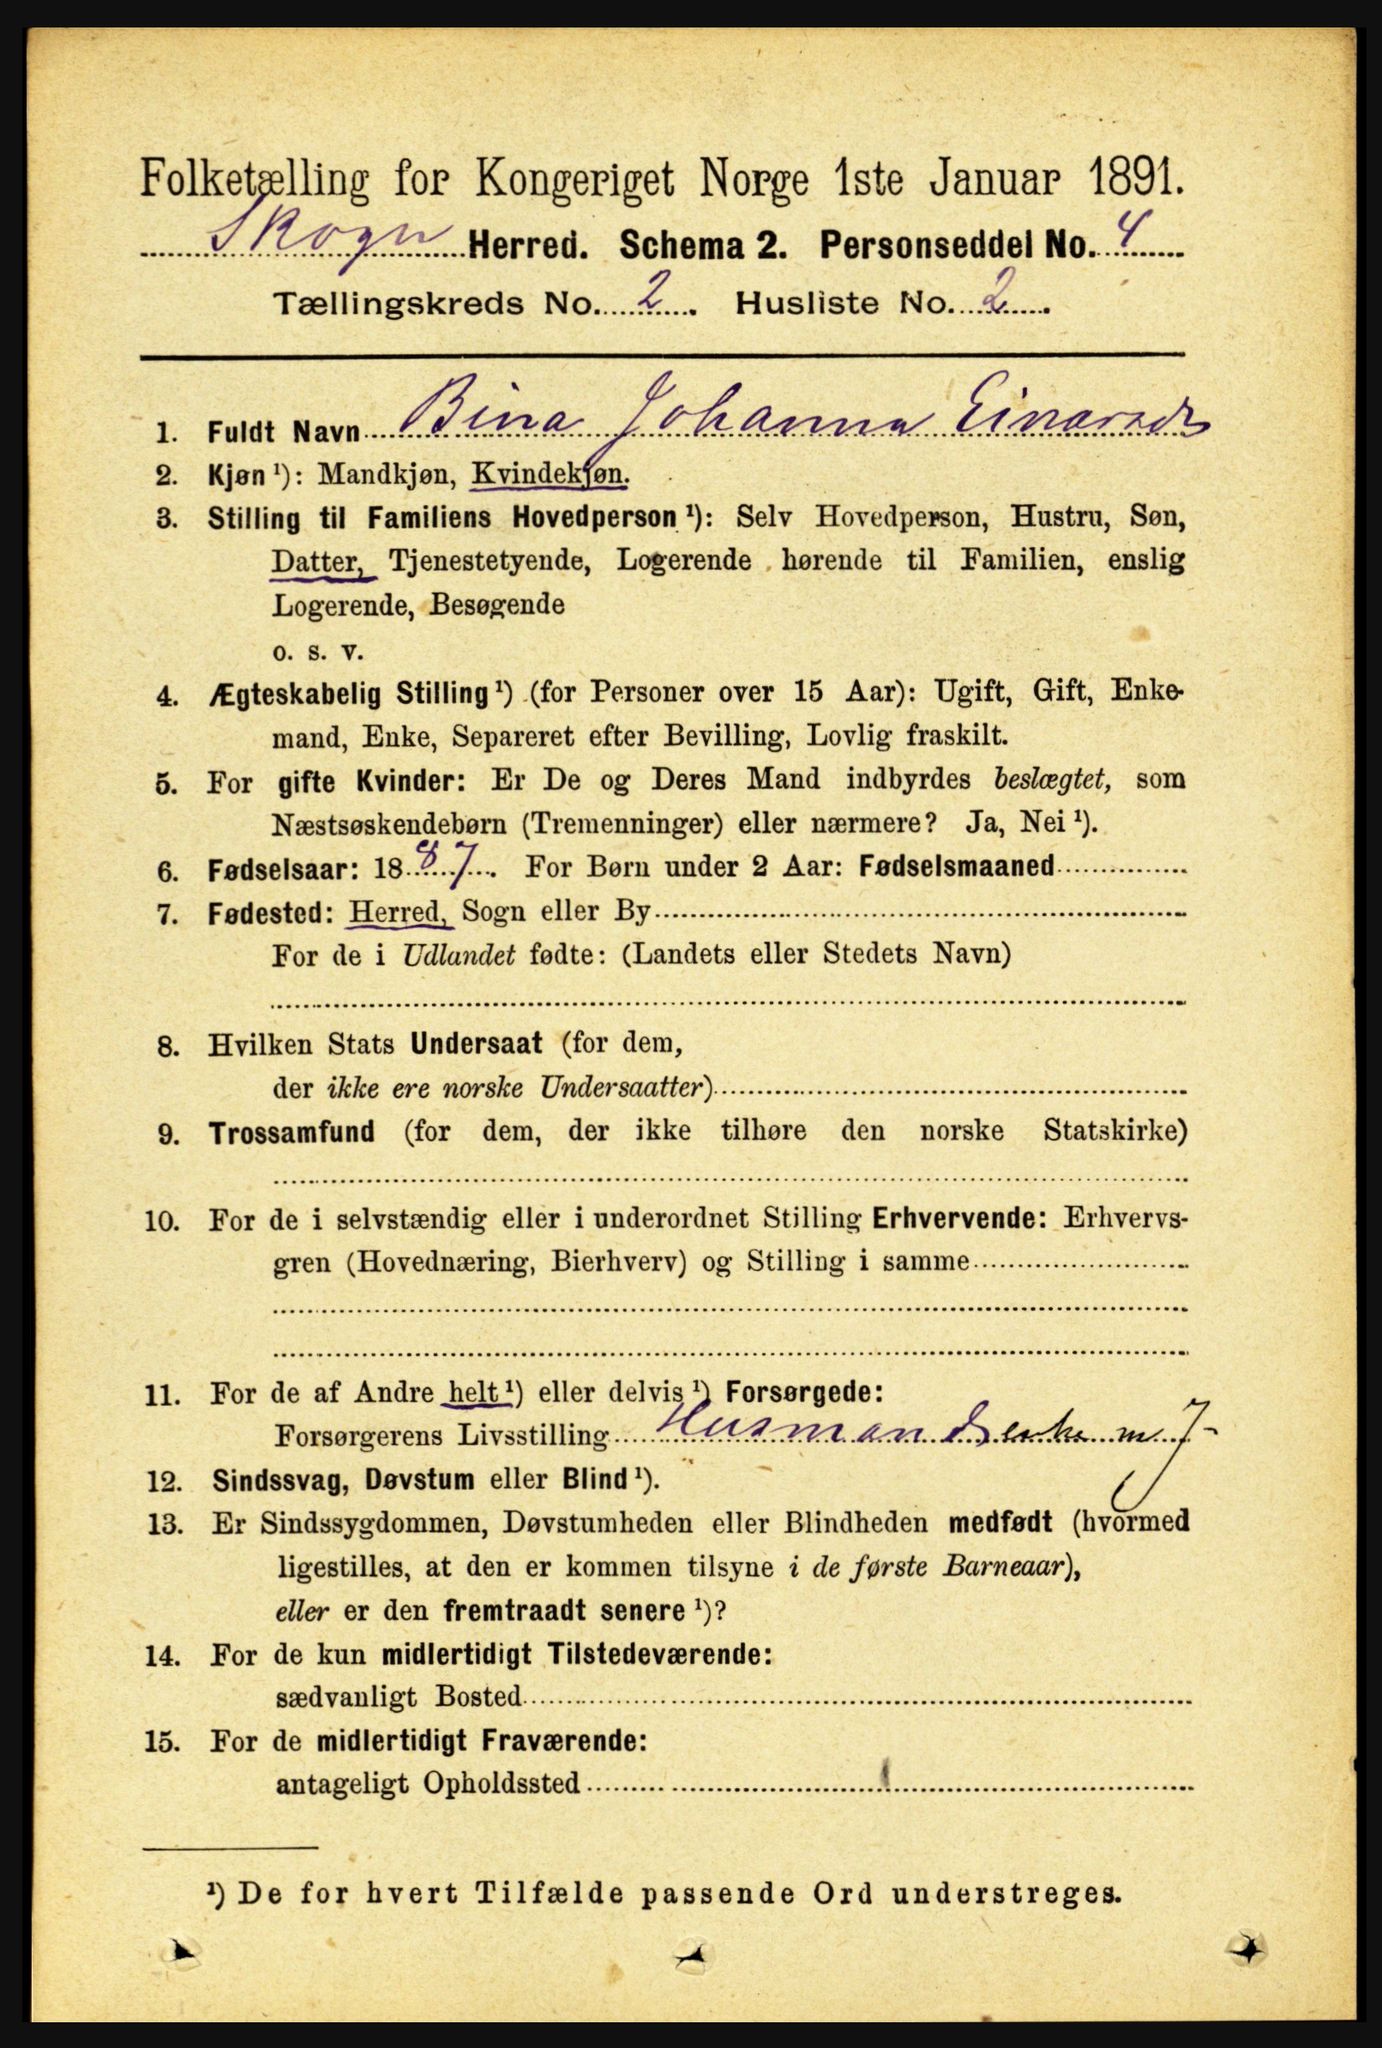 Folketælling for Kongeriget Norge 1ste Januar 1891.
Skogn Herred. Schema 2. Personseddel No. 4
Tællingskreds No. 2. Husliste No. 2.
1. Fuldt Navn Bina Johanna Einarsdr
2. Kjøn ¹): Mandkjøn, Kvindekjøn.
3. Stilling til Familiens Hovedperson ¹): Selv Hovedperson, Hustru, Søn,
Datter, Tjenestetyende, Logerende hørende til Familien, enslig
Logerende, Besøgende
o. s. v.
4. Ægteskabelig Stilling ¹) (for Personer over 15 Aar): Ugift, Gift, Enke-
mand, Enke, Separeret efter Bevilling, Lovlig fraskilt.
5. For gifte Kvinder: Er De og Deres Mand indbyrdes beslægtet, som
Næstsøskendebørn (Tremenninger) eller nærmere? Ja, Nei ¹).
6. Fødselsaar: 1887. For Børn under 2 Aar: Fødselsmaaned
7. Fødested: Herred, Sogn eller By
For de i Udlandet fødte: (Landets eller Stedets Navn)
8. Hvilken Stats Undersaat (for dem,
der ikke ere norske Undersaatter)
9. Trossamfund (for dem, der ikke tilhøre den norske Statskirke)
10. For de i selvstændig eller i underordnet Stilling Erhvervende: Erhvervs-
gren (Hovednæring, Bierhverv) og Stilling i samme
11. For de af Andre helt ¹) eller delvis ¹) Forsørgede:
Forsørgerens Livsstilling Husmandsenke m J-
12. Sindssvag, Døvstum eller Blind ¹).
13. Er Sindssygdommen, Døvstumheden eller Blindheden medfødt (hvormed
ligestilles, at den er kommen tilsyne i de første Barneaar),
eller er den fremtraadt senere ¹)?
14. For de kun midlertidigt Tilstedeværende:
sædvanligt Bosted
15. For de midlertidigt Fraværende:
antageligt Opholdssted
¹) De for hvert Tilfælde passende Ord understreges.